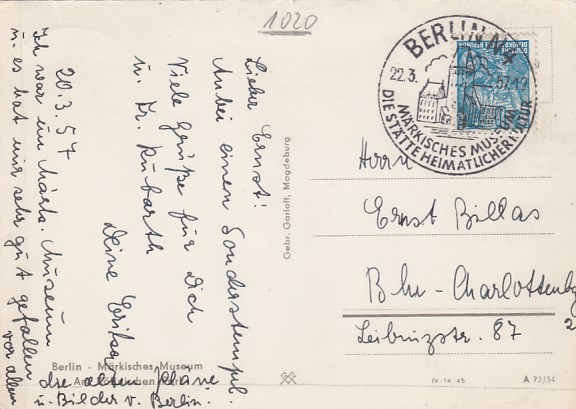 1020
20.3.57
Lieber Ernst!
Anbei einen Sonderstempel.
Viele Grüße für Dich
u. Fr. Kubarth
Deine Erika
Ich war im Märk. Museum
u. es hat mir sehr gut gefallen
vor allem
die alten Pläne
u. Bilder v. Berlin.
Berlin - Märkisches Museum
Am Köllnischen Park
Gebr. Garloff, Magdeburg
BERLIN N4
22.3. 57.12
MÄRKISCHES MUSEUM
DIE STÄTTE HEIMATLICHER KULTUR
Herrn
Ernst Billas
Bln-Charlottenbg
2
Leibnizstr. 87
IV-14-45
A 73/54